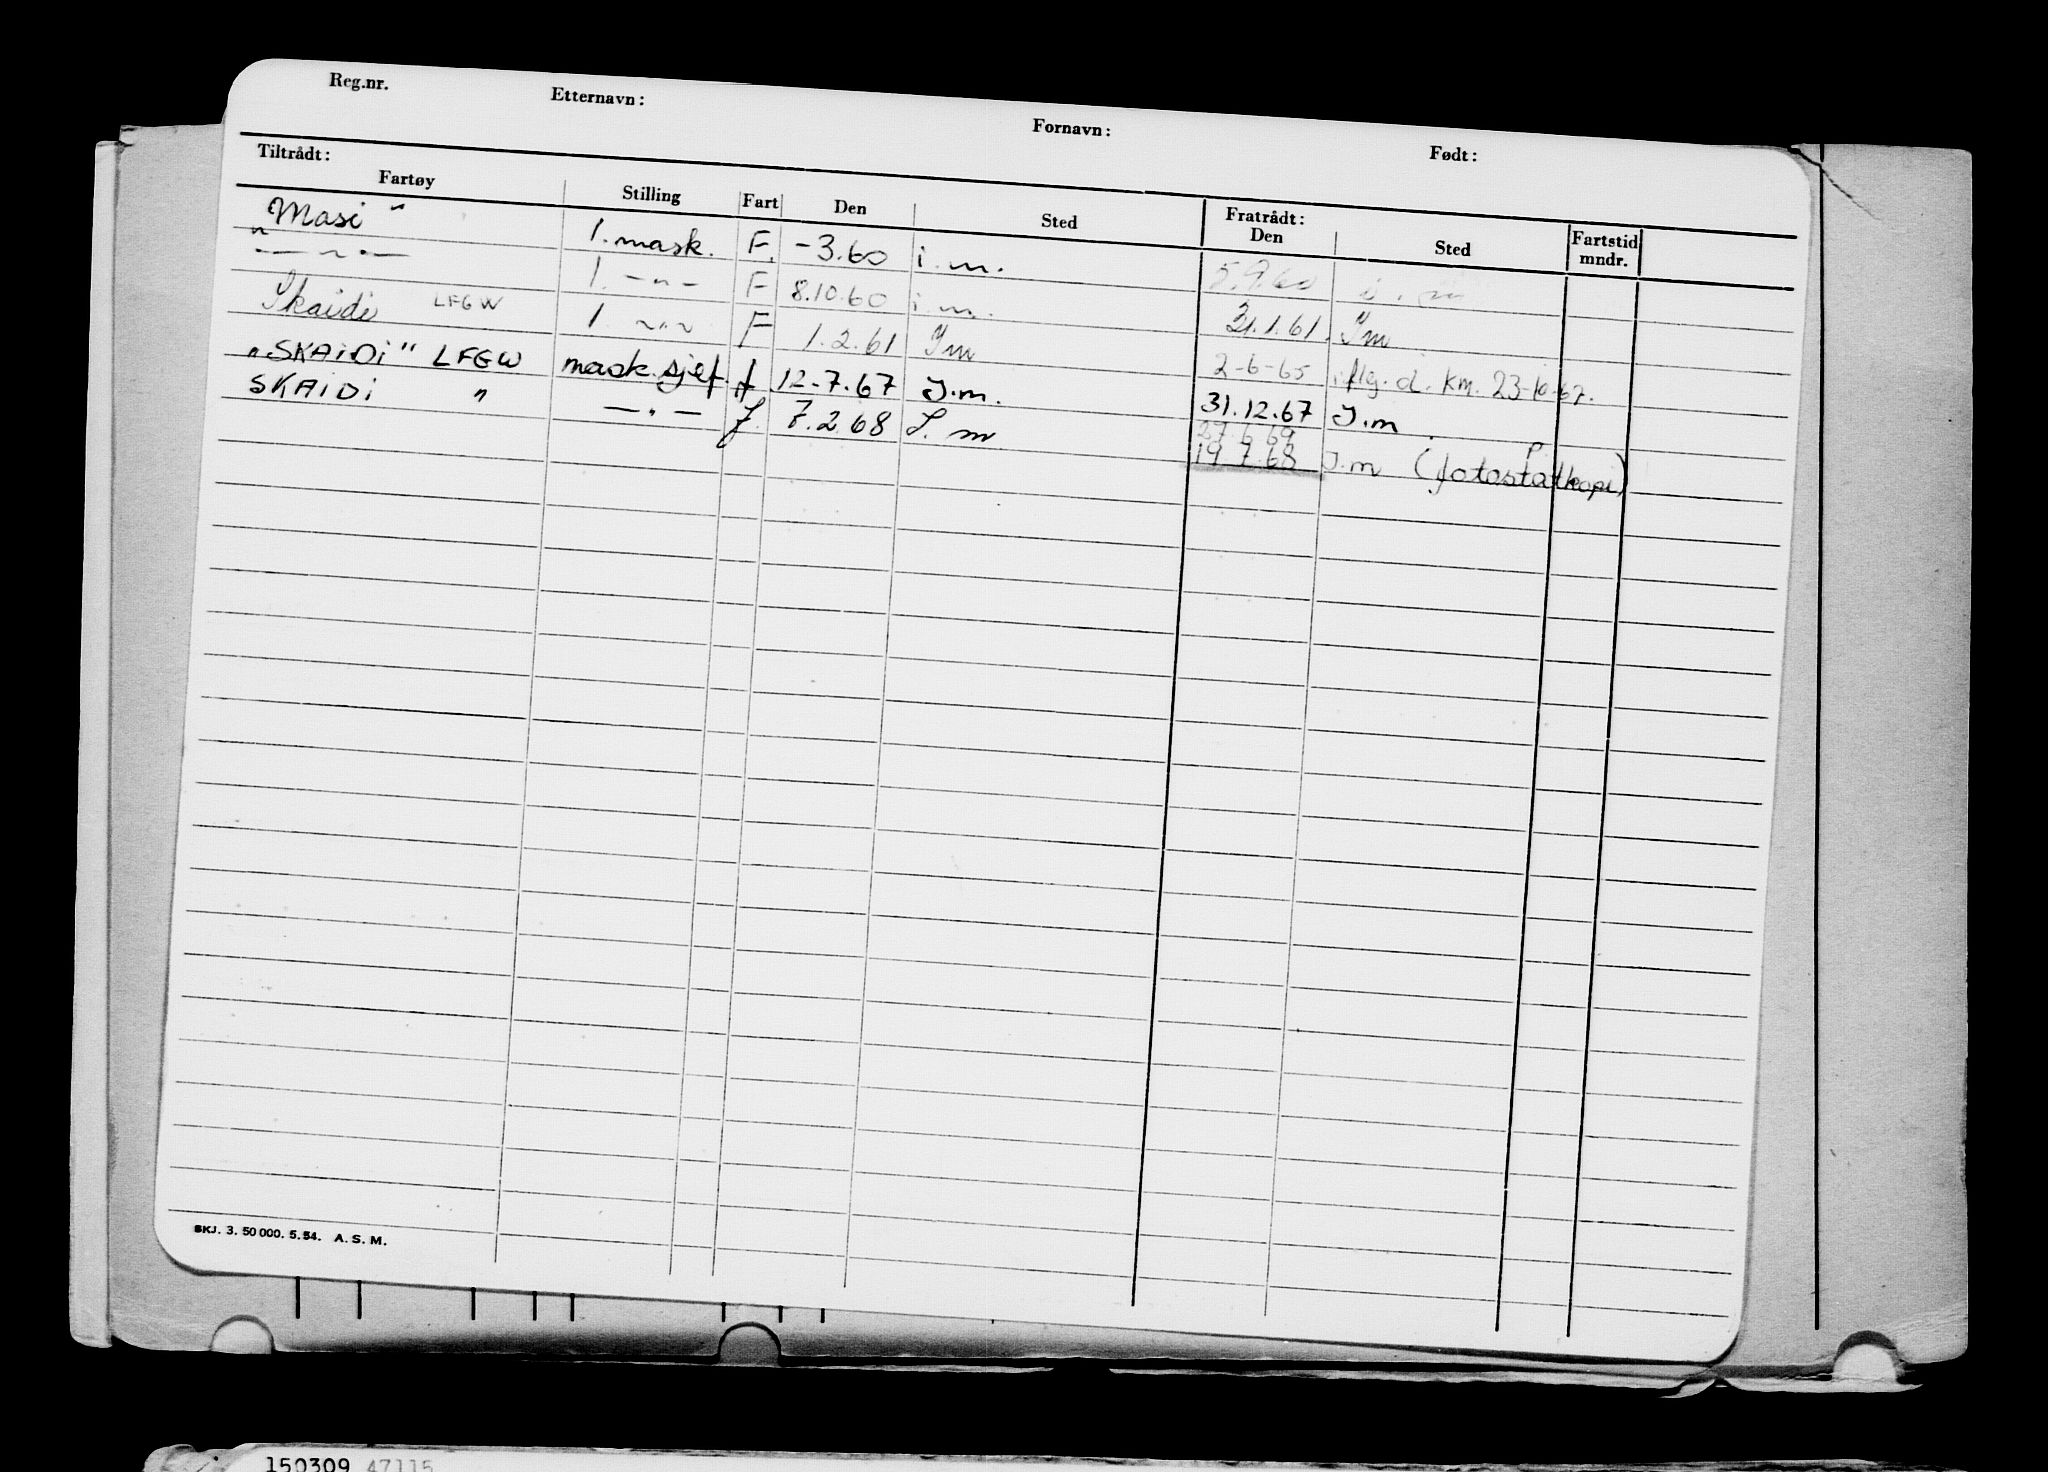 Reg.nr. Etternavn: Fornavn: Født:
Tiltrådt: Fratrådt:
Fartøy Stilling Fart Den Sted Den Sted Fartstid mndr.
"Masi" 1. mask. F. -3.60 i.m. 5.9.60 i.m
—"— 1. -"- F 8.10.60 i.m. 31.1.61. Im
Skaidi LFGW 1. -"- F 1.2.61 Im 2-6-65 iflg. d. km. 23-10-67.
"SKAiDi" LFGW mask.sjef. f 12-7.67 I.m. 31.12.67 I.m
SKAIDi " —"— f. 7.2.68 I. m 27.6.69
19.7.68 I.m (fotostatkopi)
SKJ. 3. 50 000. 5.54. A. S. M.
150309 47115